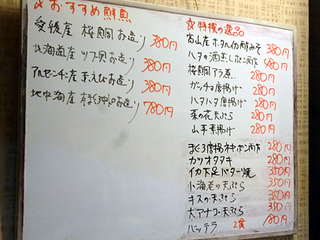 おすすめ鮮魚
愛媛産 桜鯛お造り 380円
北海道産 ツブ貝お造り 380円
アルゼンチン産 赤えびお造り 380円
地中海産 本まぐろのお造り 780円
☆特撰の逸品
富山産 ホタルイカ酢みそ 380円
ハタの酒むし ポン酢 480円
桜鯛アラ煮 280円
ガッチョ唐揚げ 280円
ハタハタ唐揚げ 280円
菜の花天ぷら 280円
山芋素揚げ 280円
まぐろ ポン酢 280円
カツオタタキ 280円
イカ下足バター焼 350円
小海老の天ぷら 350円
キスの天ぷら 350円
大アナゴ天ぷら 350円
バッテラ 2貫 180円